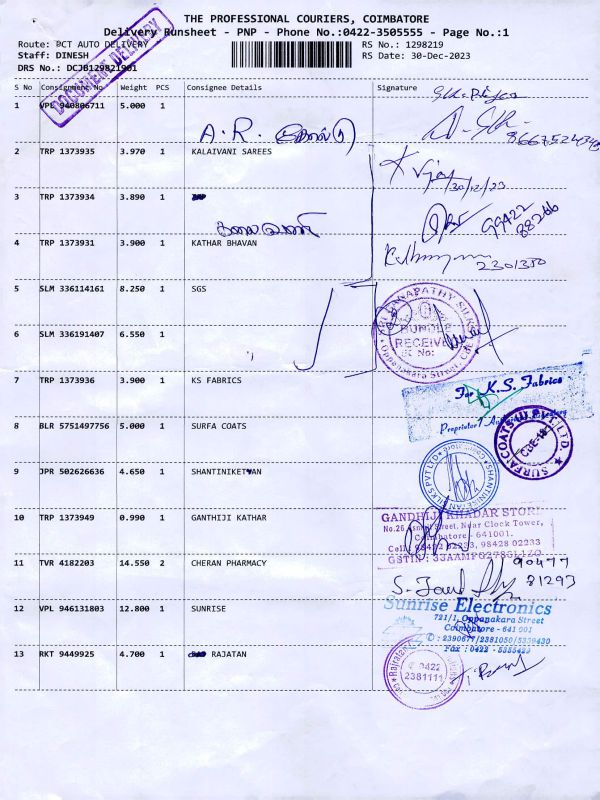 THE PROFESSIONAL COURIERS, COIMBATORE
Delivery Runsheet - PNP - Phone No.:0422-3505555 - Page No.:1
Route: PCT AUTO DELIVERY RS No.: 1298219
Staff: DINESH RS Date: 30-Dec-2023
DRS No.: DCJB129821901
DOCUMENT DELIVERY
S No Consignment No Weight PCS Consignee Details Signature
1 VPL 940806711 5.000 1
A. R.
8667524348
2 TRP 1373935 3.970 1 KALAIVANI SAREES
Vijay
30/12/23
3 TRP 1373934 3.890 1
கலைவாணி
99422
88266
4 TRP 1373931 3.900 1 KATHAR BHAVAN
2301350
5 SLM 336114161 8.250 1 SGS
BUNDLE
RECEIVED
Oppanakara Street, CBE
6 SLM 336191407 6.550 1
7 TRP 1373936 3.900 1 KS FABRICS
For K.S. Fabrics
Proprietor / Authorised Signatory
8 BLR 5751497756 5.000 1 SURFA COATS
SURFA COATS
9 JPR 502626636 4.650 1 SHANTINIKETWAN
10 TRP 1373949 0.990 1 GANTHIJI KATHAR
GANDHIJI KHADAR STORE
Street, Near Clock Tower,
Coimbatore - 641001.
98428 02233
11 TVR 4182203 14.550 2 CHERAN PHARMACY
90477
81293
12 VPL 946131803 12.800 1 SUNRISE
Sunrise Electronics
721/1, Oppanakara Street
Coimbatore - 641 001
13 RKT 9449925 4.700 1 RAJATAN
0422
2381111